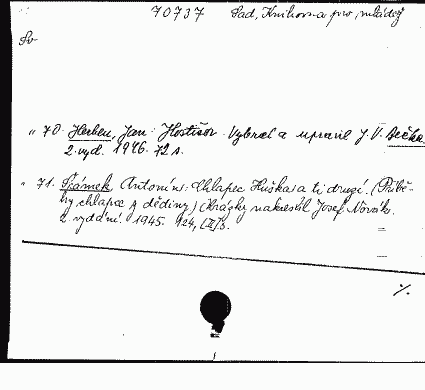 70737 Sad, Knihovna pro mládež
Sv
„ 70. Herben, Jan: Hostišov. Vybral a upravil J. V. Sečka.
2. vyd. 1946. 72 s.
„ 71. Srámek Antonín: Chlapec Huška a ti druzí. (Příbě-
hy chlapce z dědiny) Obrázky nakreslil Josef Novák.
2. vydání. 1945. 124, [2] s.
%.